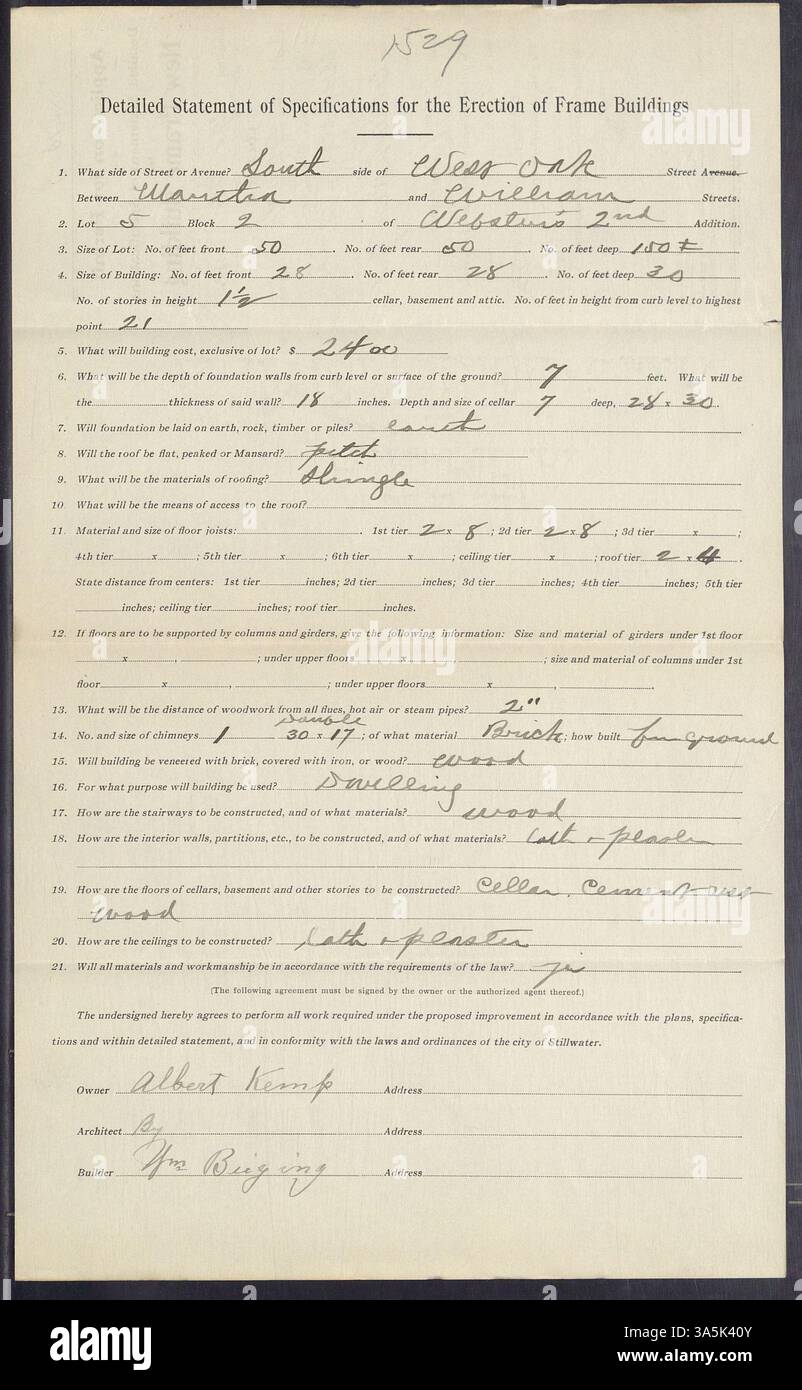 1529
Detailed Statement of Specifications for the Erection of Frame Buildings
1. What side of Street or Avenue? South side of West Oak Street Avenue.
Between Martha and William Streets.
2. Lot 5 Block 2 of Webster's 2nd Addition.
3. Size of Lot: No. of feet front 50. No. of feet rear 50. No. of feet deep 150 ±
4. Size of Building: No. of feet front 28. No. of feet rear 28. No. of feet deep 30
No. of stories in height 1 1/2 cellar, basement and attic. No. of feet in height from curb level to highest
point 21
5. What will building cost, exclusive of lot? $ 2400
6. What will be the depth of foundation walls from curb level or surface of the ground? 7 feet. What will be
the thickness of said wall? 18 inches. Depth and size of cellar 7 deep, 28 x 30.
7. Will foundation be laid on earth, rock, timber or piles? earth
8. Will the roof be flat, peaked or Mansard? pitch
9. What will be the materials of roofing? Shingle
10. What will be the means of access to the roof?
11. Material and size of floor joists: . 1st tier 2 x 8; 2d tier 2 x 8; 3d tier x ;
4th tier x ; 5th tier x ; 6th tier x ; ceiling tier x ; roof tier 2 x 4.
State distance from centers: 1st tier inches; 2d tier inches; 3d tier inches; 4th tier inches; 5th tier
inches; ceiling tier inches; roof tier inches.
12. If floors are to be supported by columns and girders, give the following information: Size and material of girders under 1st floor
x , ; under upper floors x , ; size and material of columns under 1st
floor x , ; under upper floors x , .
13. What will be the distance of woodwork from all flues, hot air or steam pipes? 2"
14. No. and size of chimneys 1 double 30 x 17; of what material Brick; how built from ground
15. Will building be veneered with brick, covered with iron, or wood? wood
16. For what purpose will building be used? Dwelling
17. How are the stairways to be constructed, and of what materials? wood
18. How are the interior walls, partitions, etc., to be constructed, and of what materials? Lath + plaster
19. How are the floors of cellars, basement and other stories to be constructed? Cellar, Cement rest
wood
20. How are the ceilings to be constructed? Lath + plaster
21. Will all materials and workmanship be in accordance with the requirements of the law? yes
(The following agreement must be signed by the owner or the authorized agent thereof.)
The undersigned hereby agrees to perform all work required under the proposed improvement in accordance with the plans, specifica-
tions and within detailed statement, and in conformity with the laws and ordinances of the city of Stillwater.
Owner Albert Kemp Address
Architect By Address
Builder Wm Bieging Address
alamy
Image ID: 3A5K40Y
www.alamy.com